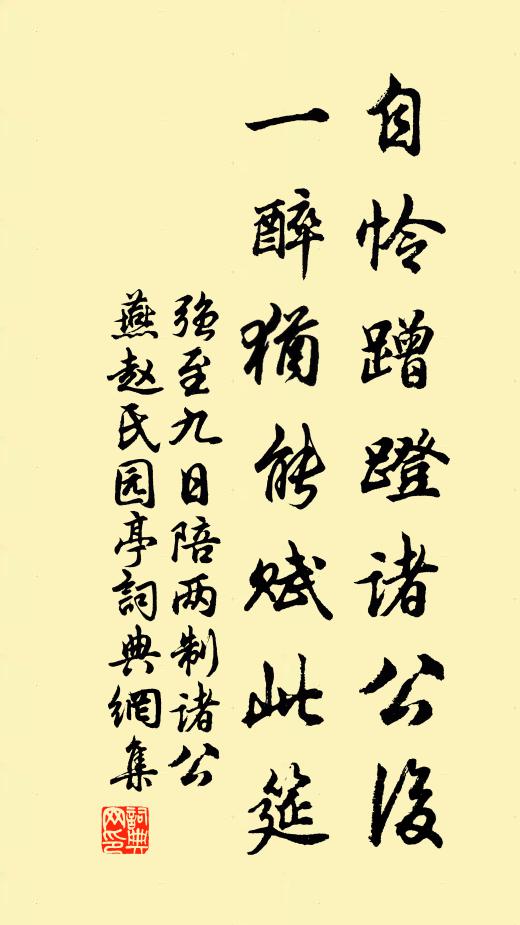 自怜蹭蹬诸公后
一醉犹能赋此筵
强至九日陪两制诸公
燕赵氏园亭詞典網集
詞典
网印